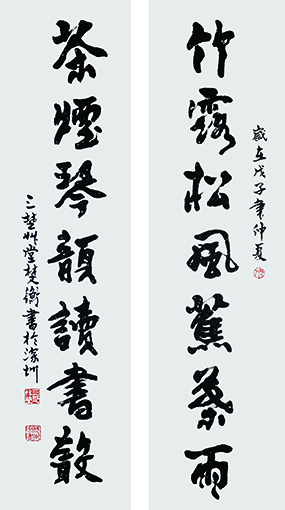 竹露松風蕉葉雨
歲在戊子年仲夏
茶煙琴韻讀書聲
三楚艸堂楚衡書於深圳